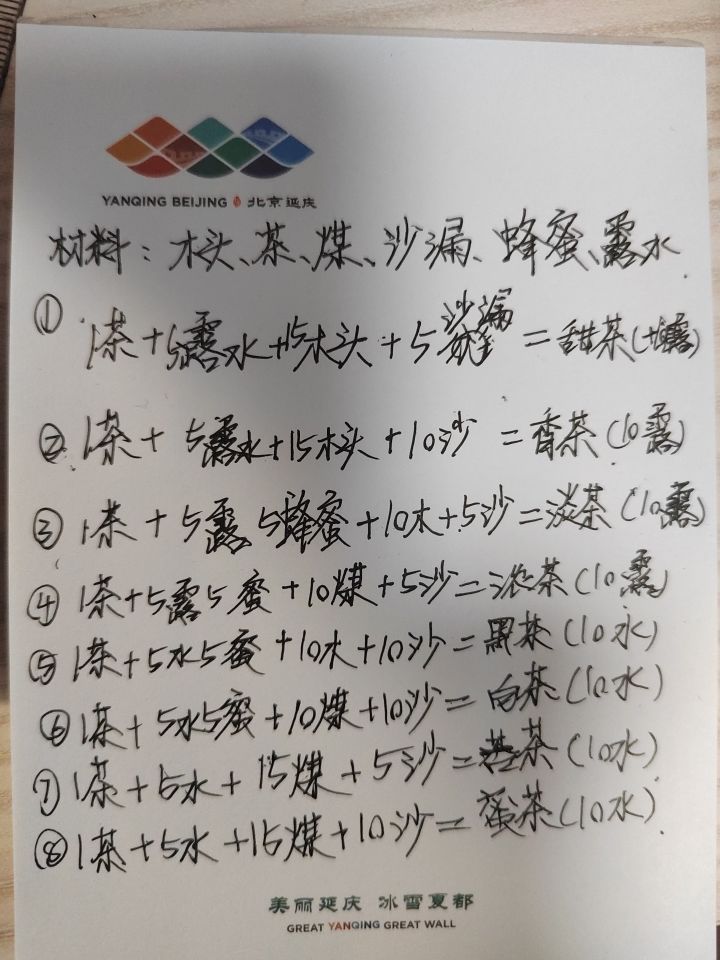 YANQING BEIJING 北京延庆
材料：木头、茶、煤、沙漏、蜂蜜、露水
① 1茶+5露水+15木头+5沙漏=甜茶(10露)
② 1茶+5露水+15木头+10沙=香茶(10露)
③ 1茶+5露5蜂蜜+10木+5沙=淡茶(10露)
④ 1茶+5露5蜜+10煤+5沙=浓茶(10露)
⑤ 1茶+5水5蜜+10木+10沙=黑茶(10水)
⑥ 1茶+5水5蜜+10煤+10沙=白茶(10水)
⑦ 1茶+5水+15煤+5沙=苦茶(10水)
⑧ 1茶+5水+15煤+10沙=茶(10水)
美丽延庆 冰雪夏都
GREAT YANQING GREAT WALL